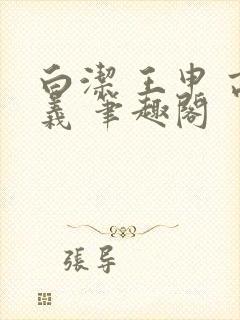 白潔 王申 高
義 筆趣閣
張导